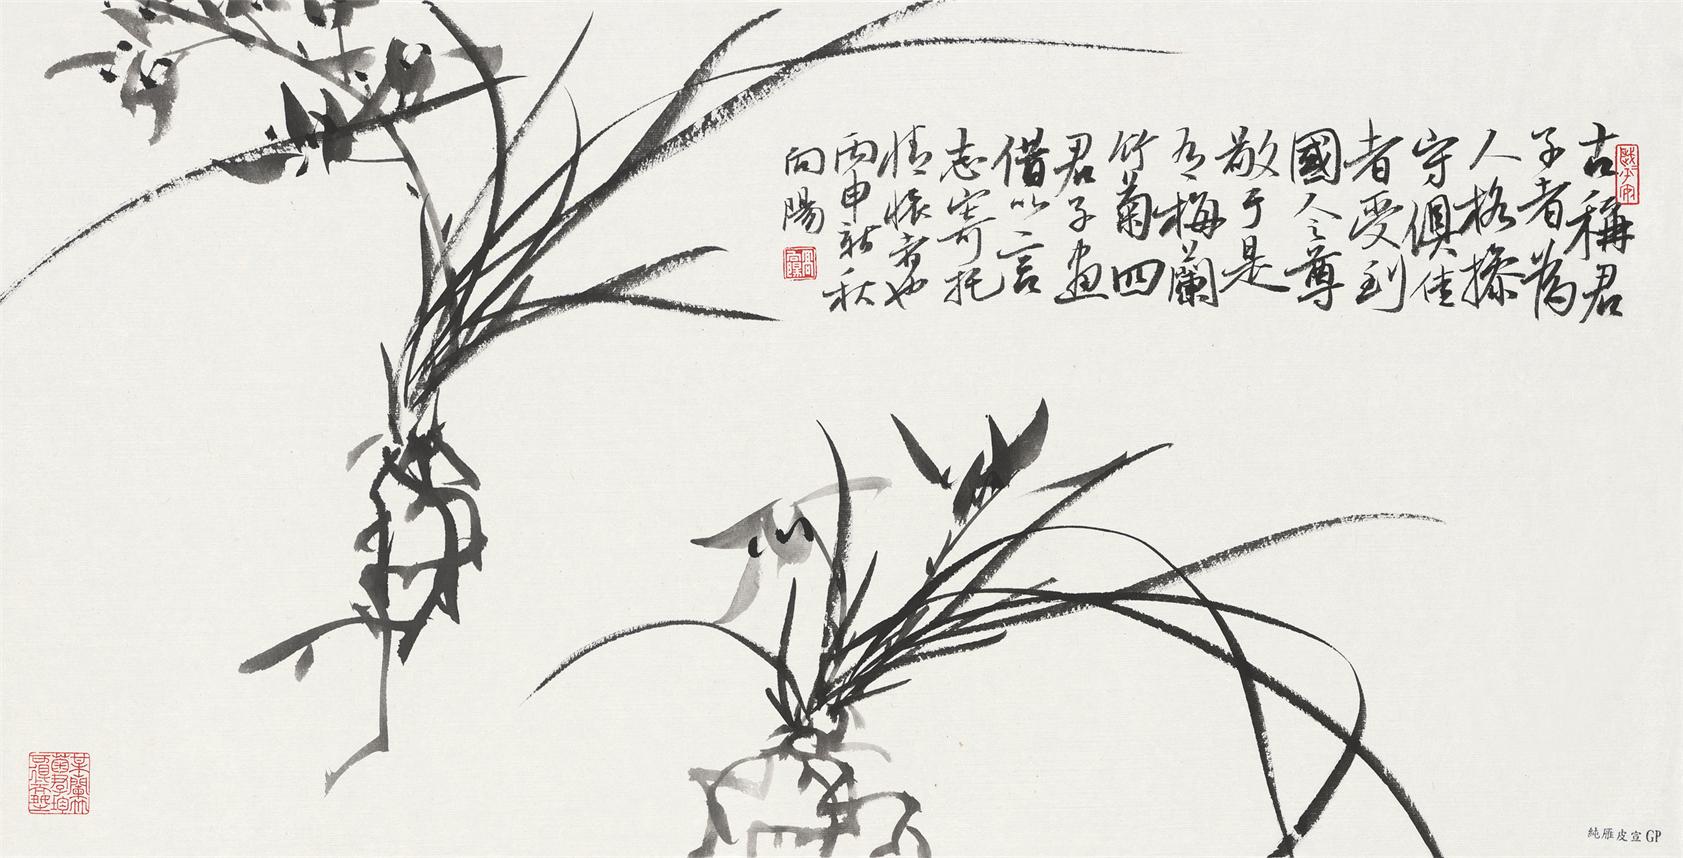 古稱君
子者為
人格操
守俱佳
者受到
國人之尊
敬于是
有梅蘭
竹菊四
君子畫
借以言
志寄托
情懷者也
丙申新秋
向陽
純雁皮宣 GP